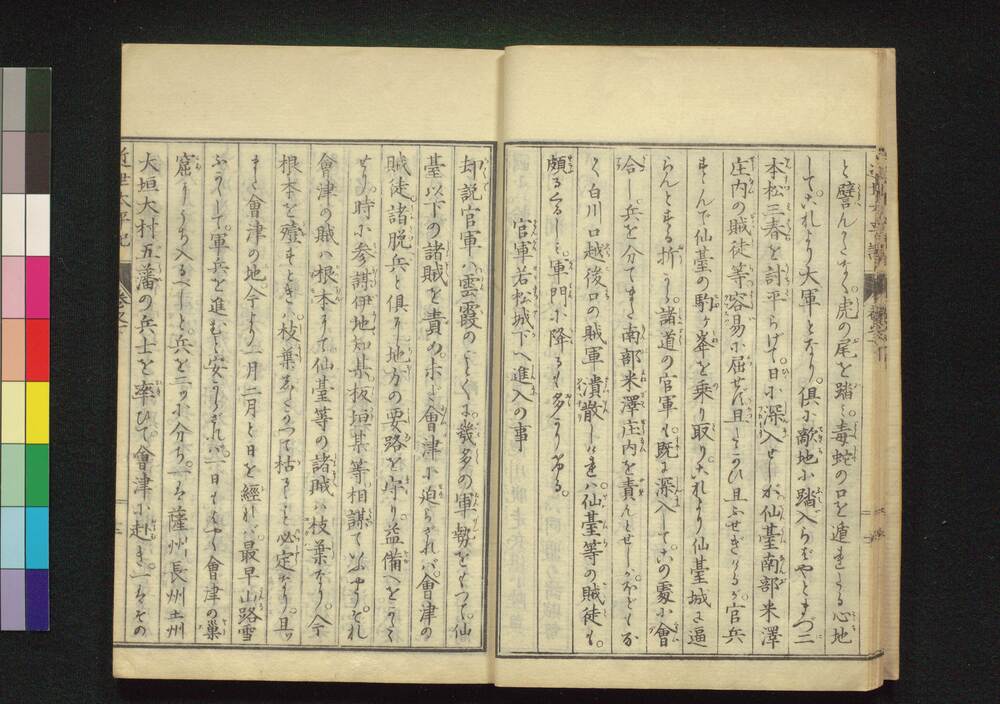 と譬んかたなく虎の尾を踏ミ毒蛇の口を遁れたる心地
してこれより大軍となり俱に敵地に踏入らばやとまづ二
本松三春を討平らげて日に深入せしが仙臺南部米澤
庄内の賊徒等容易に屈せん且たゝかひ且ふせぎけるが官兵
すゝんで仙臺の駒ヶ峯を乗り取りこれより仙臺城に逼
らんとする折から諸道の官軍も既に深入してこの處に會
合し兵を分てまた南部米澤庄内を責んとせしがほども
なく白川口越後口の賊軍潰散しければ仙臺等の賊徒も
頗るくるしミ軍門に降るもの多かりける
官軍若松城下へ進入の事
却説官軍ハ雲霞のごとくに幾多の軍勢をもつて仙
臺以下の諸賊を責めホと會津に迫らざれバ會津の
賊徒諸脱兵と俱に地方の要路を守り益備へをなし
せり時に参謀伊地知某板垣某等相謀ていふやうそれ
會津の賊ハ根本にて仙臺等の諸賊ハ枝葉なり今
根本を殪すときハ枝葉したがつて枯るゝこと必定なり且つ
また會津の地今より一月二月と日を經れバ最早山路雪
ふかくして軍兵を進むる安からざれバ一日もはやく會津の巣
窟にうち入るべしと兵を二つに分ち一は薩州長州土州
大垣大村五藩の兵士を率ひて會津に赴き一はその
近世太平記